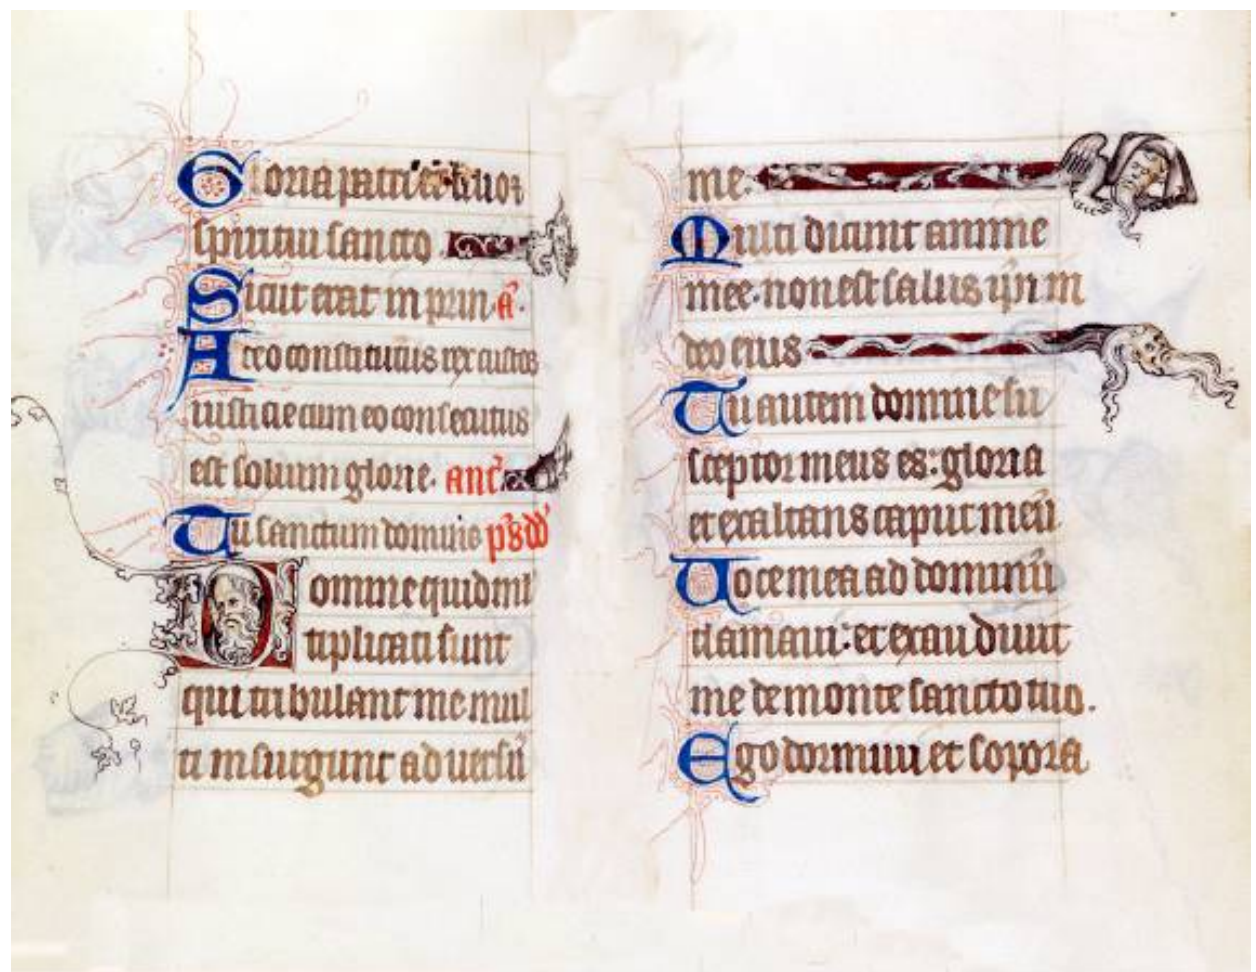 Gloria patri et filio et
spiritui sancto
Sicut erat in prin. a͛.
A deo constitutus rex custos
iusticie cum eo consecutus
est solium glorie. anc͛.
Tu sanctum domine ps͛ dd͛
Domine quid mul
tiplicati sunt
qui tribulant me mul
ti insurgunt aduersū
me.
Multi dicunt anime
mee. non est salus ip̄i in
deo eius
Tu autem domine su
sceptor meus es: gloria
et exaltans caput meū
Uoce mea ad dominū
clamaui: et exaudiuit
me de monte sancto tuo.
Ego dormiui et sopora